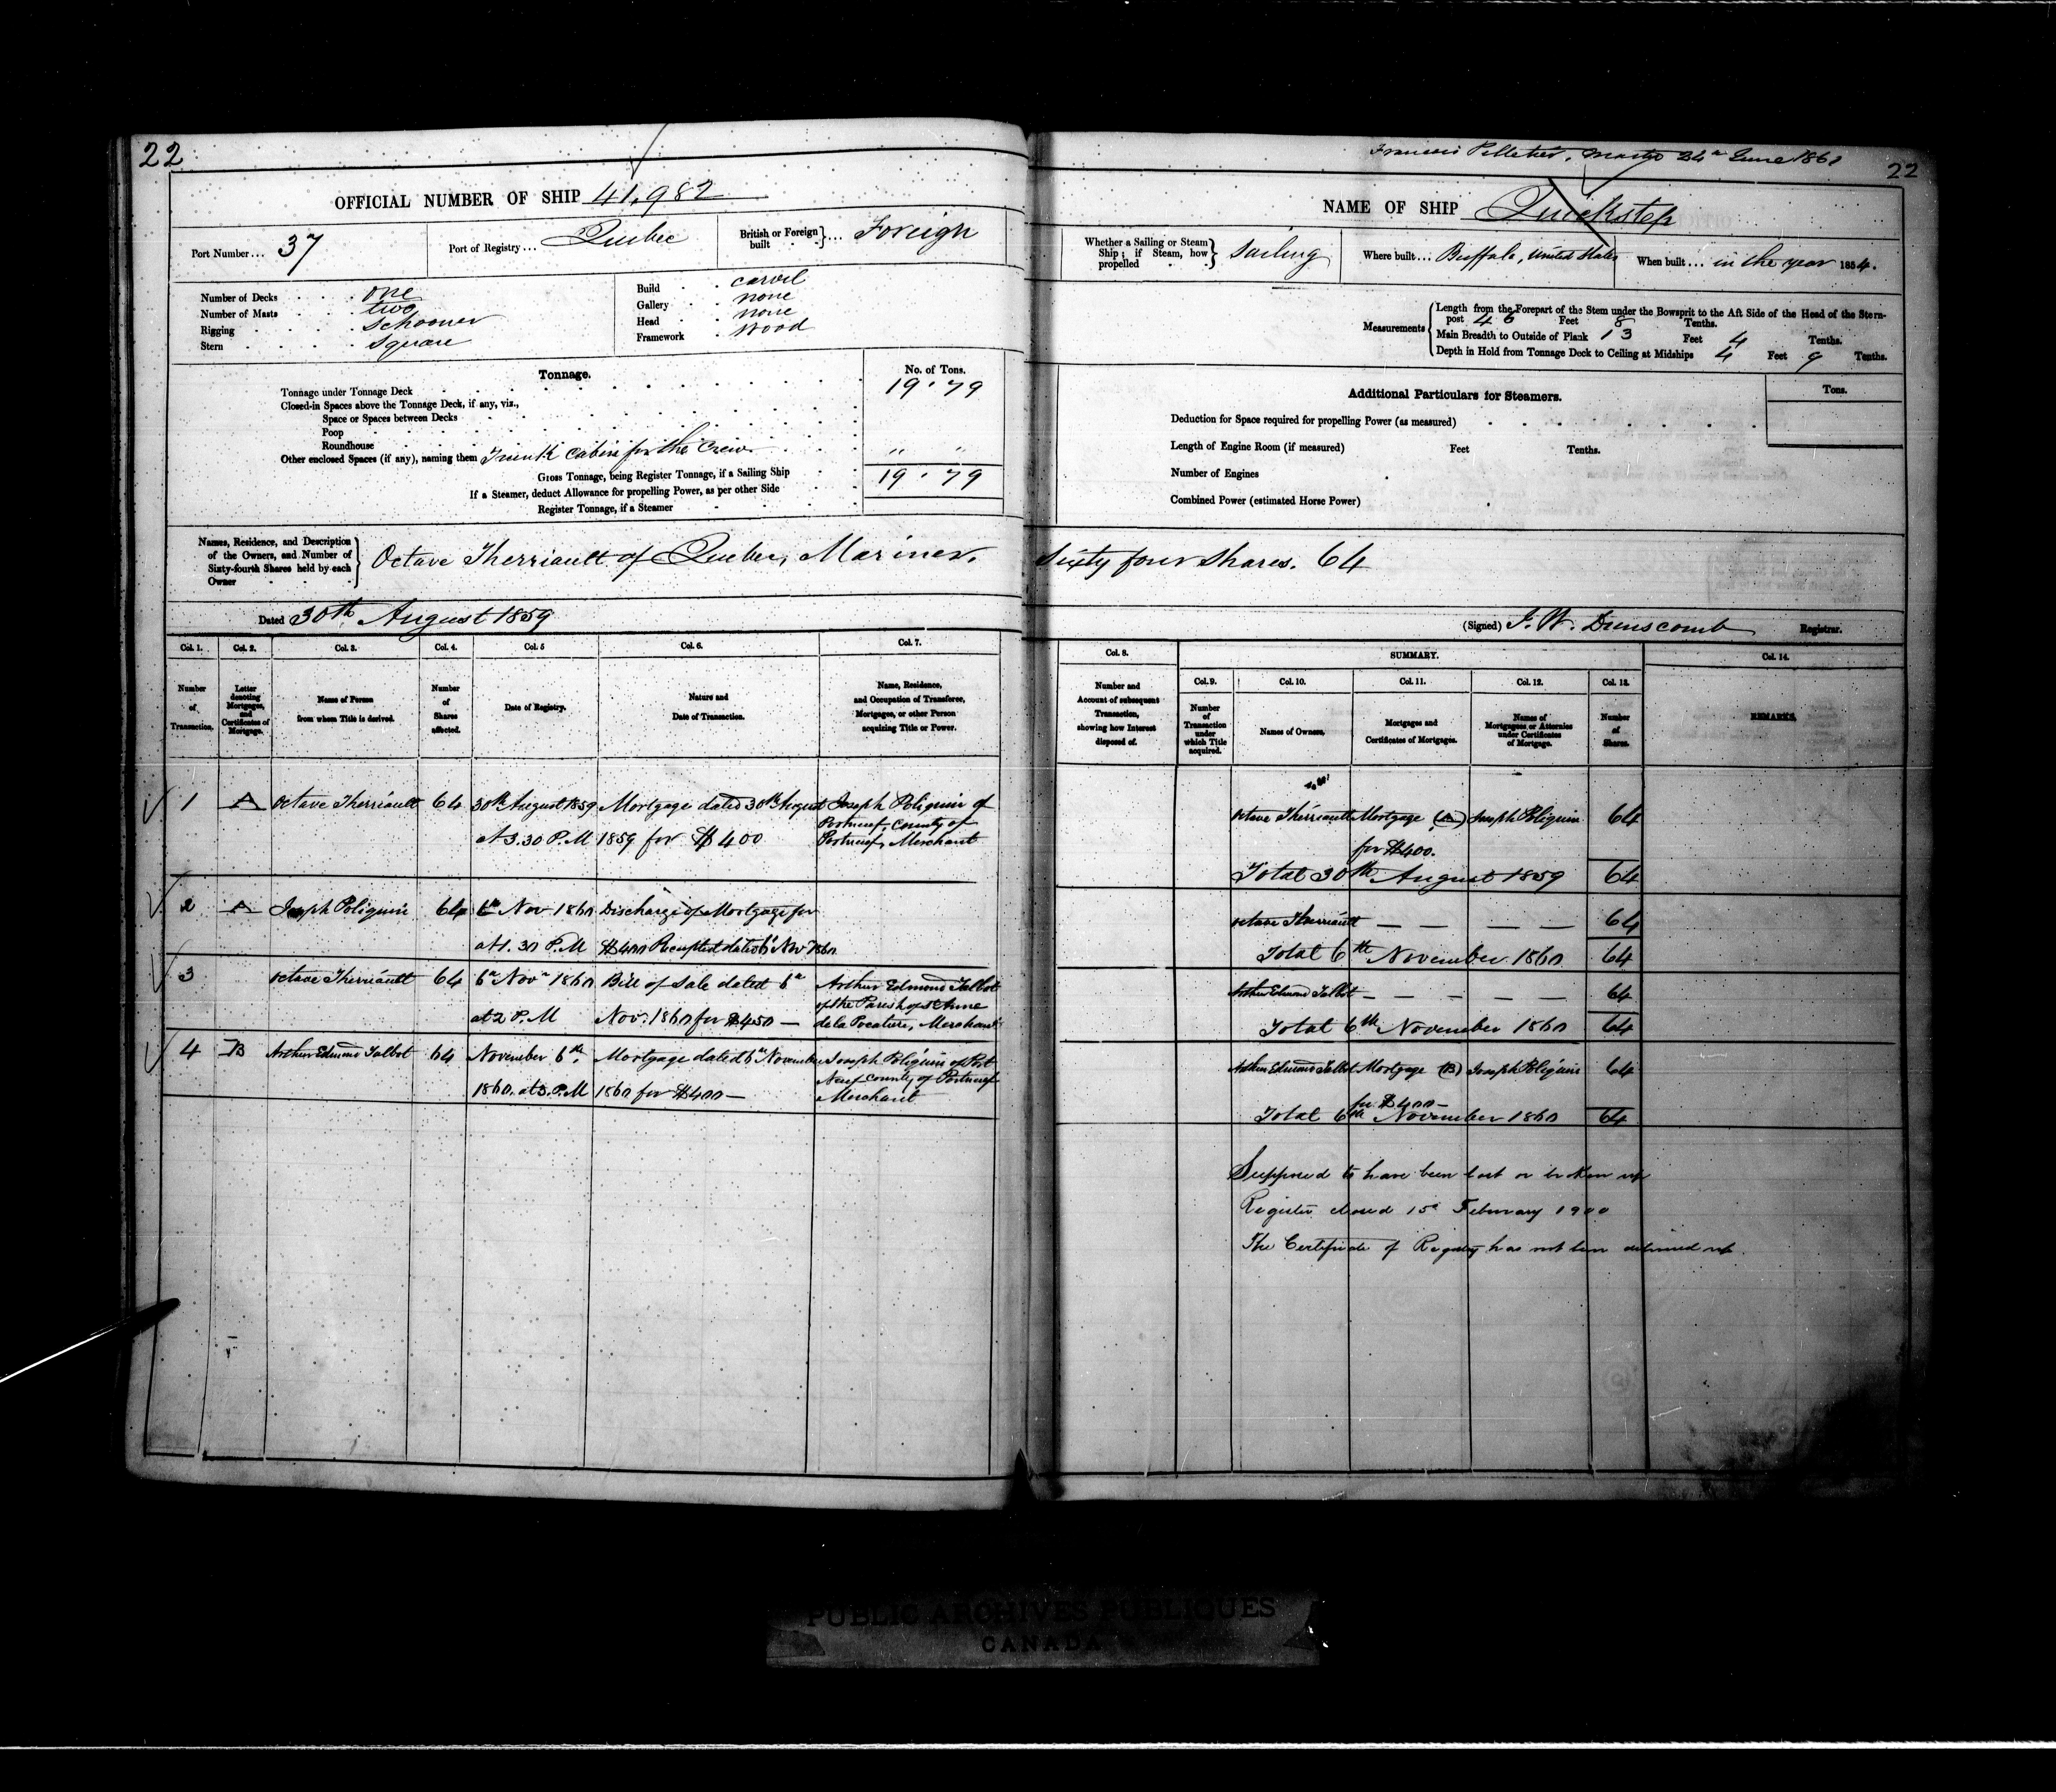 22
OFFICIAL NUMBER OF SHIP 41,982
Port Number... 37
Port of Registry... Quebec
British or Foreign built } ... Foreign
Number of Decks . . . one
Number of Masts . . . two
Rigging . . . . schooner
Stern . . . . square
Build . . carvel
Gallery . . none
Head . . none
Framework . wood
Tonnage.
No. of Tons.
Tonnage under Tonnage Deck 19 . 79
Closed-in Spaces above the Tonnage Deck, if any, viz.,
Space or Spaces between Decks
Poop
Roundhouse
Other enclosed Spaces (if any), naming them Trunk cabin for the Crew " "
Gross Tonnage, being Register Tonnage, if a Sailing Ship 19 . 79
If a Steamer, deduct Allowance for propelling Power, as per other Side
Register Tonnage, if a Steamer
Names, Residence, and Description
of the Owners, and Number of
Sixty-fourth Shares held by each
Owner
Octave Therriault of Quebec, Mariner.
Dated 30th August 1859
Col. 1. Col. 2. Col. 3. Col. 4. Col. 5 Col. 6. Col. 7.
Number of Transaction.
Letter denoting Mortgages, and Certificates of Mortgage.
Name of Person from whom Title is derived.
Number of Shares affected.
Date of Registry.
Nature and Date of Transaction.
Name, Residence, and Occupation of Transferee, Mortgagee, or other Person acquiring Title or Power.
1 A Octave Therriault 64 30th August 1859 Mortgage dated 30th August Joseph Poliquin of
Portneuf, County of
at 3.30 P.M 1859 for $400 Portneuf, Merchant
2 A Joseph Poliquin 64 6th Nov 1860 Discharge of Mortgage for
at 1.30 P.M $400 Receipted dated 6th Nov 1860
3 Octave Therriault 64 6th Novr 1860 Bill of Sale dated 6th Arthur Edmond Talbot
of the Parish of St Anne
at 2 P.M Nov. 1860 for $450 — de la Pocatiere, Merchant
4 B Arthur Edmond Talbot 64 November 6th Mortgage dated 6th November Joseph Poliquin of Port
Neuf County of Portneuf
1860. at 3. P.M 1860 for $400 — Merchant
Francois Pelletier, Master 24th June 186
22
NAME OF SHIP Quickstep
Whether a Sailing or Steam Ship; if Steam, how propelled } Sailing
Where built... Buffalo, United States
When built... in the year 1854.
Measurements
Length from the Forepart of the Stem under the Bowsprit to the Aft Side of the Head of the Stern-
post 46 Feet 8 Tenths.
Main Breadth to Outside of Plank 13 Feet 4 Tenths.
Depth in Hold from Tonnage Deck to Ceiling at Midships 4 Feet 9 Tenths.
Additional Particulars for Steamers.
Tons.
Deduction for Space required for propelling Power (as measured)
Length of Engine Room (if measured) Feet Tenths.
Number of Engines
Combined Power (estimated Horse Power)
Sixty four Shares. 64
(Signed) J. W. Dunscomb Registrar.
Col. 8. SUMMARY. Col. 14.
Col. 9. Col. 10. Col. 11. Col. 12. Col. 13.
Number and Account of subsequent Transaction, showing how Interest disposed of.
Number of Transaction under which Title acquired.
Names of Owners.
Mortgages and Certificates of Mortgages.
Names of Mortgagees or Attornies under Certificates of Mortgage.
Number of Shares.
REMARKS.
Octave Therriault Mortgage (A) Joseph Poliquin 64
for $400.
Total 30th August 1859 64
Octave Therriault — — — — 64
Total 6th November 1860 64
Arthur Edmond Talbot — — — — — 64
Total 6th November 1860 64
Arthur Edmond Talbot Mortgage (B) Joseph Poliquin 64
for $400 —
Total 6th November 1860 64
Supposed to have been lost or broken up
Register closed 15th February 1900
The Certificate of Registry has not been delivered up.
PUBLIC ARCHIVES PUBLIQUES
CANADA